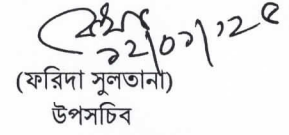 ১২/০১/২৫
(ফরিদা সুলতানা)
উপসচিব